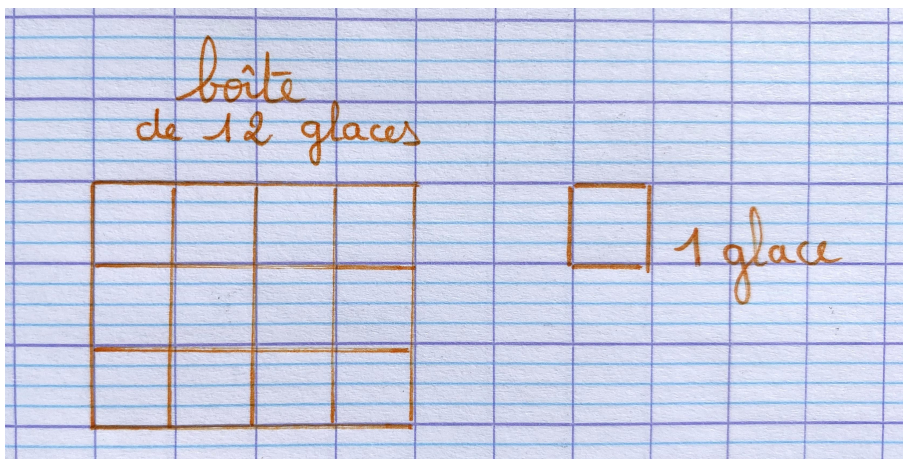 boîte
de 12 glaces
1 glace